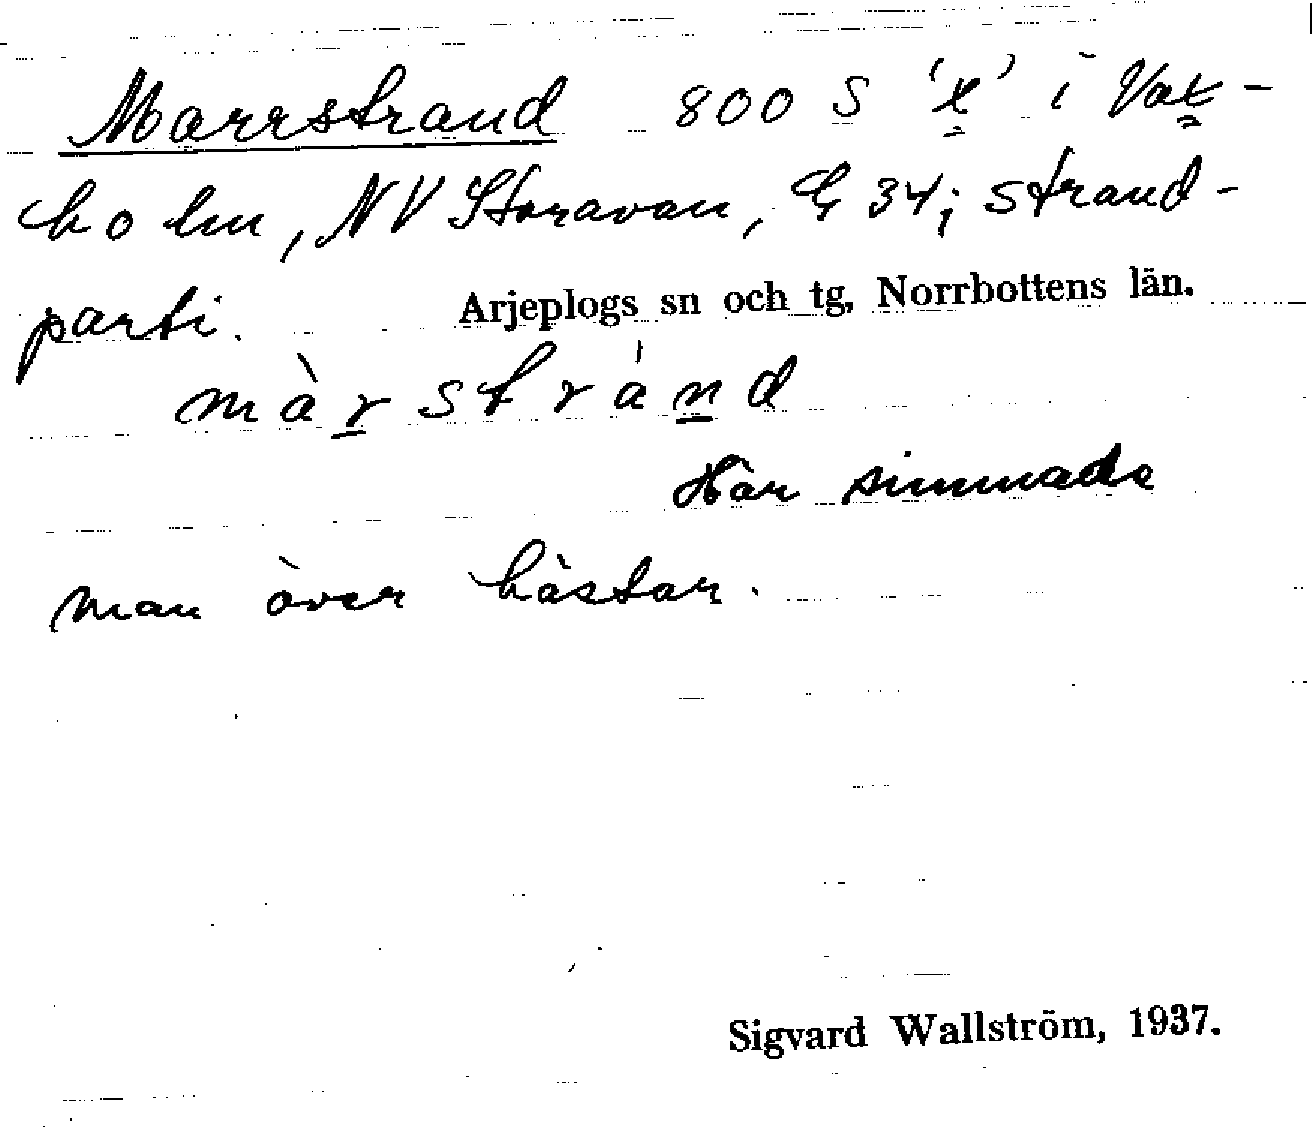 Marrstrand 800 S 'x' i Vax-
holm, NV Storavan, G 34; strand-
parti.
Arjeplogs sn och tg, Norrbottens län.
màrstránd
Här simmade
man över hästar.
Sigvard Wallström, 1937.